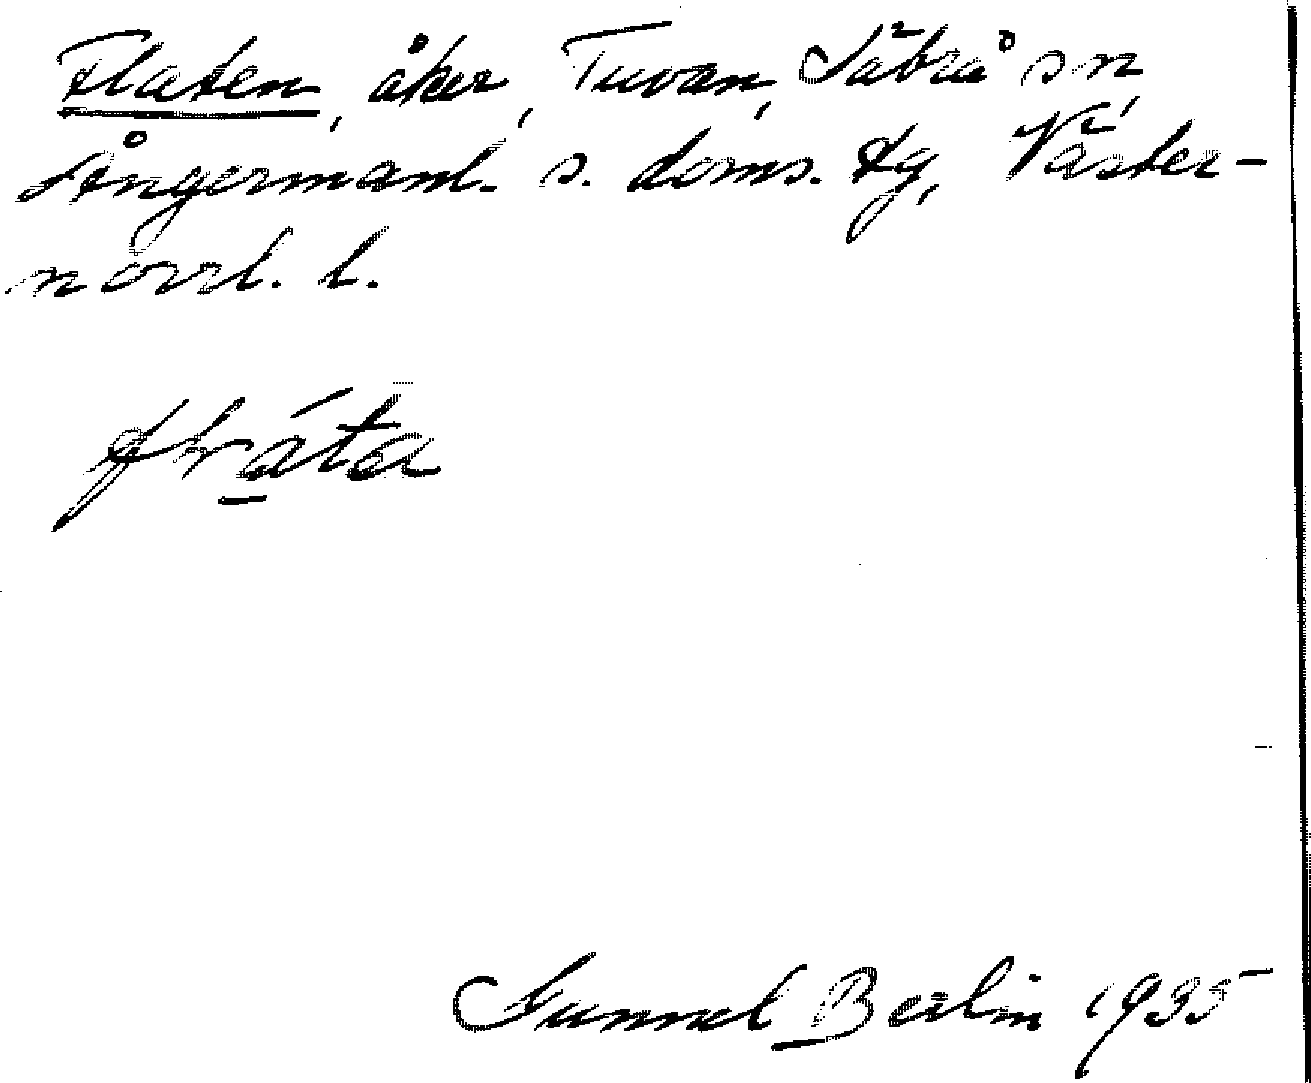 Flaten, åker, Tuvan, Säbrå sn,
Ångermanl. s. doms. tg, Väster-
norrl. l.
Gunnel Berlin 1935